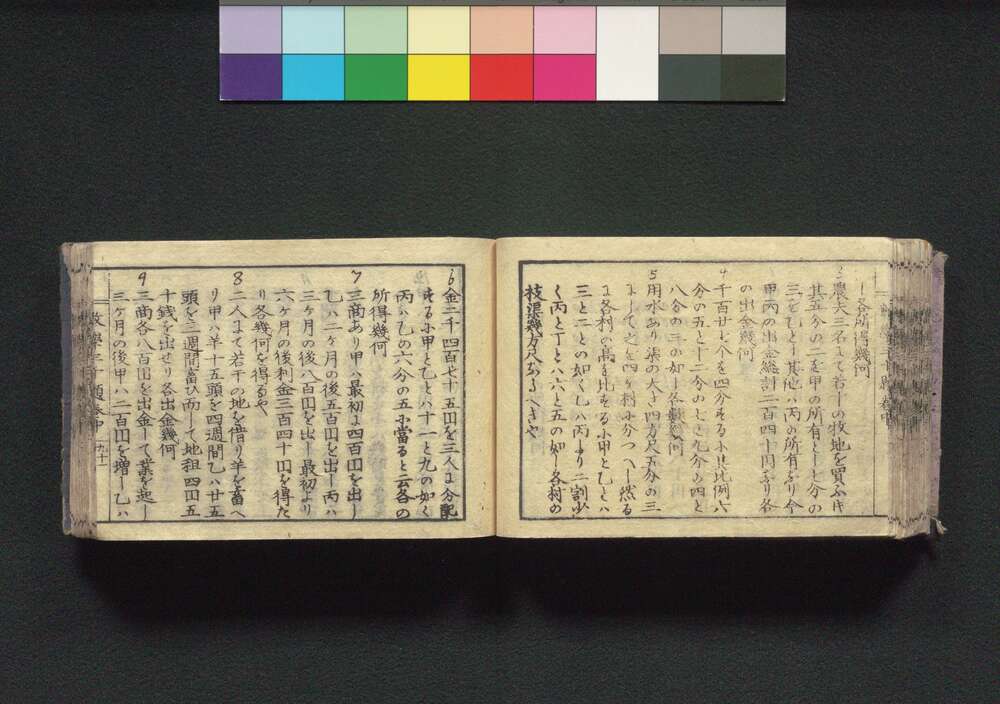 し各所得幾何
3 農夫三名にて若干の牧地を買ふに
其五分の二を甲の所有とし七分の
三を乙とし其他ハ丙の所有なり今
甲丙の出金総計二百四十円なり各
の出金幾何
4 千百廿七个を四分する小其比例六
分の五と十二分の七と九分の四と
八分の三の如し各数幾何
5 用水あり渠の大さ四方尺五分の三
にして之を四ヶ村小分つへし然る
に各村の高を比する小甲と乙とハ
三と二との如く乙ハ丙より二割少
く丙と丁とハ六と五の如し各村の
枝渠幾方尺なるへきや
6 金二千四百七十五円を三人に分配
する小甲と乙とハ十一と九の如く
丙ハ乙の六分の五小當ると云各の
所得幾何
7 三商あり甲ハ最初に四百円を出し
乙ハ二ヶ月の後五百円を出し丙ハ
三ヶ月の後八百円を出し最初より
六ヶ月の後利金三百四十円を得た
り各幾何を得るや
8 二人にて若干の地を借り羊を畜へ
り甲ハ羊十五頭を四週間乙ハ廿五
頭を三週間畜ひ而して地租四円五
十銭を出せり各出金幾何
9 三商各八百円を出金して業を起し
三ヶ月の後甲ハ二百円を増し乙ハ